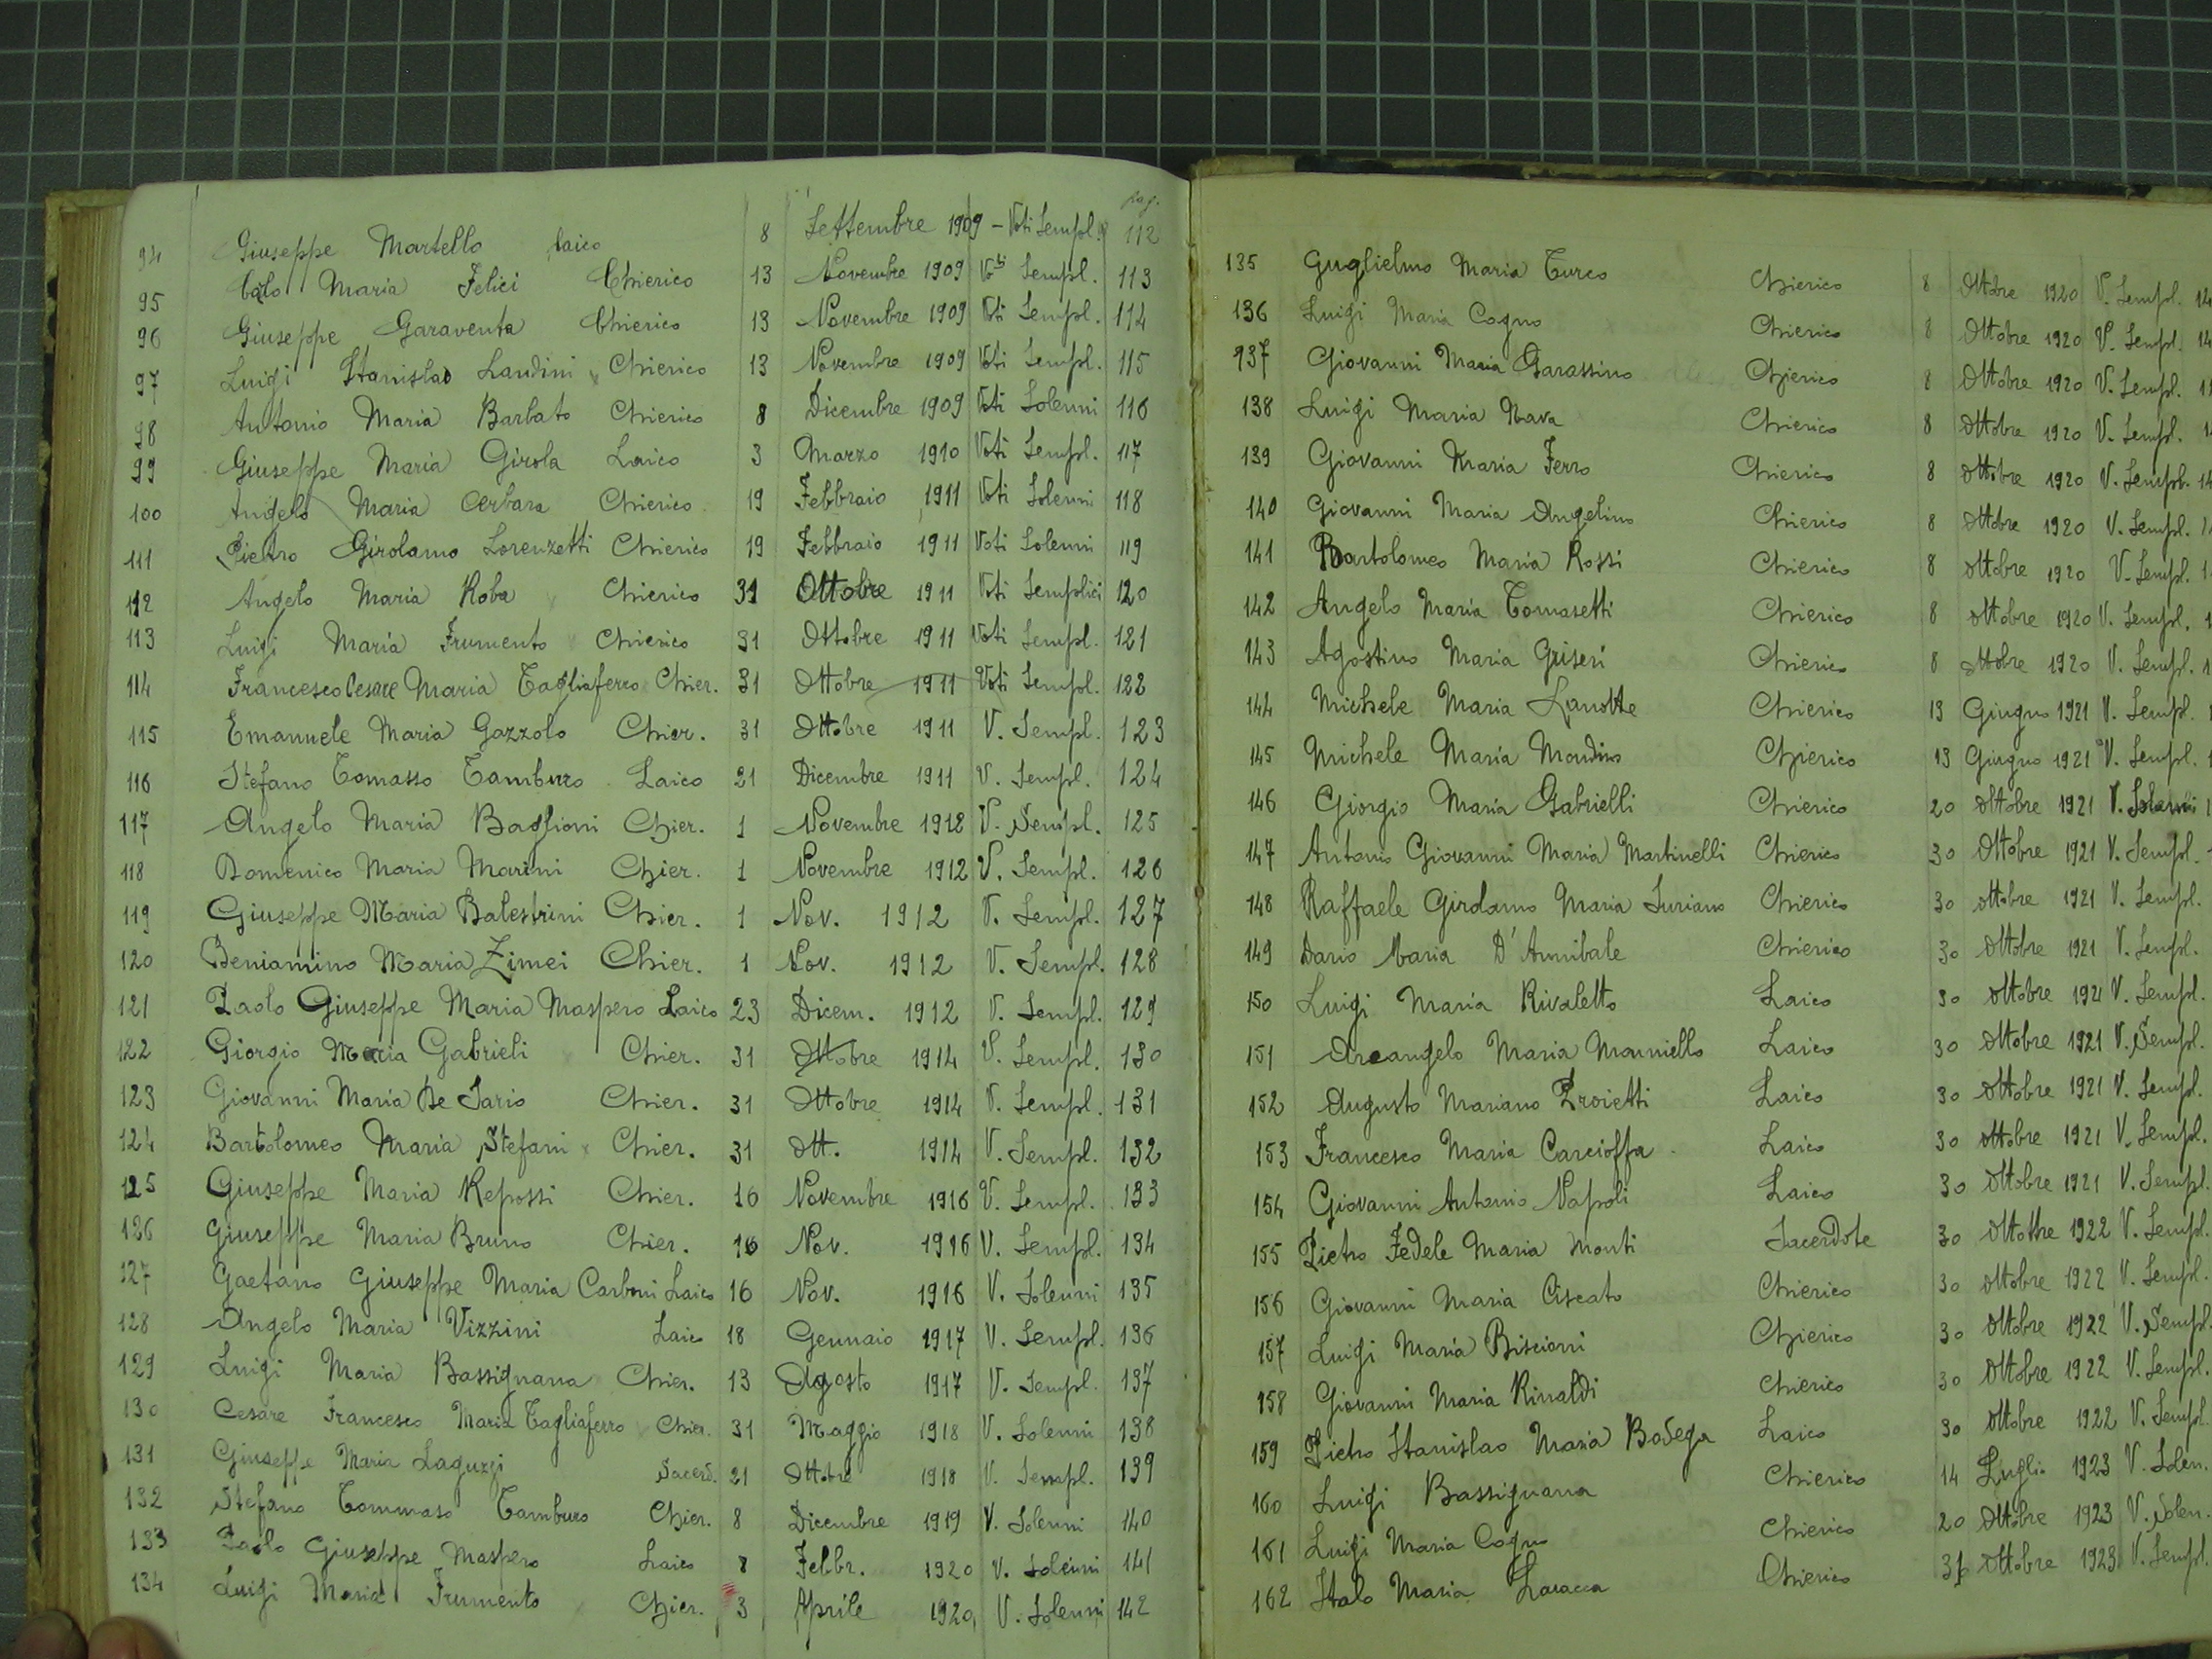 pag.
94 Giuseppe Martello Laico 8 Settembre 1909 - Voti Sempl. 112
95 Maria Felici Chierico 13 Novembre 1909 Vti Sempl. 113
96 Giuseppe Garaventa Chierico 13 Novembre 1909 Voti Sempl. 114
97 Luigi Stanislao Landini Chierico 13 Novembre 1909 Voti Sempl. 115
98 Antonio Maria Barbato Chierico 8 Dicembre 1909 Voti Solenni 116
99 Giuseppe Maria Girola Laico 3 Marzo 1910 Voti Sempl. 117
100 Angelo Maria Cerbara Chierico 19 Febbraio 1911 Voti Solenni 118
111 Pietro Girolamo Lorenzetti Chierico 19 Febbraio 1911 Voti Solenni 119
112 Angelo Maria Roba Chierico 31 Ottobre 1911 Voti Semplici 120
113 Luigi Maria Frumento Chierico 31 Ottobre 1911 Voti Sempl. 121
114 Francesco Cesare Maria Tagliaferro Chier. 31 Ottobre 1911 Voti Sempl. 122
115 Emanuele Maria Gazzolo Chier. 31 Ottobre 1911 V. Sempl. 123
116 Stefano Tomasso Tamburo Laico 21 Dicembre 1911 V. Sempl. 124
117 Angelo Maria Baglioni Chier. 1 Novembre 1912 V. Sempl. 125
118 Domenico Maria Marini Chier. 1 Novembre 1912 V. Sempl. 126
119 Giuseppe Maria Balestrini Chier. 1 Nov. 1912 V. Sempl. 127
120 Beniamino Maria Zimei Chier. 1 Nov. 1912 V. Sempl. 128
121 Paolo Giuseppe Maria Maspero Laico 23 Dicem. 1912 V. Sempl. 129
122 Giorgio Maria Gabrieli Chier. 31 Ottobre 1914 V. Sempl. 130
123 Giovanni Maria De Sario Chier. 31 Ottobre 1914 V. Sempl. 131
124 Bartolomeo Maria Stefani Chier. 31 Ott. 1914 V. Sempl. 132
125 Giuseppe Maria Repossi Chier. 16 Novembre 1916 V. Sempl. 133
126 Giuseppe Maria Bruno Chier. 16 Nov. 1916 V. Sempl. 134
127 Gaetano Giuseppe Maria Carboni Laico 16 Nov. 1916 V. Solenni 135
128 Angelo Maria Vizzini Laico 18 Gennaio 1917 V. Sempl. 136
129 Luigi Maria Bassignana Chier. 13 Agosto 1917 V. Sempl. 137
130 Cesare Francesco Maria Tagliaferro Chier. 31 Maggio 1918 V. Solenni 138
131 Giuseppe Maria Laguzzi Sacerd. 21 Ottobre 1918 V. Sempl. 139
132 Stefano Tommaso Tamburo Chier. 8 Dicembre 1919 V. Solenni 140
133 Paolo Giuseppe Maspero Laico 8 Febbr. 1920 V. Solenni 141
134 Luigi Maria Frumento Chier. 3 Aprile 1920 V. Solenni 142
135 Guglielmo Maria Turco Chierico 8 Ottobre 1920 V. Sempl. 14
136 Luigi Maria Cogno Chierico 8 Ottobre 1920 V. Sempl. 14
137 Giovanni Maria Garassino Chierico 8 Ottobre 1920 V. Sempl. 1
138 Luigi Maria Nava Chierico 8 Ottobre 1920 V. Sempl. 1
139 Giovanni Maria Ferro Chierico 8 Ottobre 1920 V. Sempl. 14
140 Giovanni Maria Angelino Chierico 8 Ottobre 1920 V. Sempl. 1
141 Bartolomeo Maria Rossi Chierico 8 ottobre 1920 V. Sempl. 1
142 Angelo Maria Tomasetti Chierico 8 ottobre 1920 V. Sempl. 1
143 Agostino Maria Griseri Chierico 8 ottobre 1920 V. Sempl. 1
144 Michele Maria Lanotte Chierico 13 Giugno 1921 V. Sempl. 1
145 Michele Maria Mondino Chierico 13 Giugno 1921 V. Sempl. 1
146 Giorgio Maria Gabrielli Chierico 20 Ottobre 1921 V. Solenni 1
147 Antonio Giovanni Maria Martinelli Chierico 30 Ottobre 1921 V. Sempl.
148 Raffaele Girolamo Maria Suriano Chierico 30 ottobre 1921 V. Sempl.
149 Dario Maria D'Annibale Chierico 30 Ottobre 1921 V. Sempl.
150 Luigi Maria Rivaletto Laico 30 Ottobre 1921 V. Sempl.
151 Arcangelo Maria Manniello Laico 30 Ottobre 1921 V. Sempl.
152 Augusto Mariano Proietti Laico 30 Ottobre 1921 V. Sempl.
153 Francesco Maria Carcioffa Laico 30 ottobre 1921 V. Sempl.
154 Giovanni Antonio Napoli Laico 30 Ottobre 1921 V. Sempl.
155 Pietro Fedele Maria Monti Sacerdote 30 Ottobre 1922 V. Sempl.
156 Giovanni Maria Ciscato Chierico 30 ottobre 1922 V. Sempl.
157 Luigi Maria Biscioni Chierico 30 Ottobre 1922 V. Sempl.
158 Giovanni Maria Rinaldi Chierico 30 Ottobre 1922 V. Sempl.
159 Pietro Stanislao Maria Bodega Laico 30 Ottobre 1922 V. Sempl.
160 Luigi Bassignana Chierico 14 Luglio 1923 V. Solen.
161 Luigi Maria Cogno Chierico 20 Ottobre 1923 V. Solen.
162 Italo Maria Laracca Chierico 31 Ottobre 1923 V. Sempl.